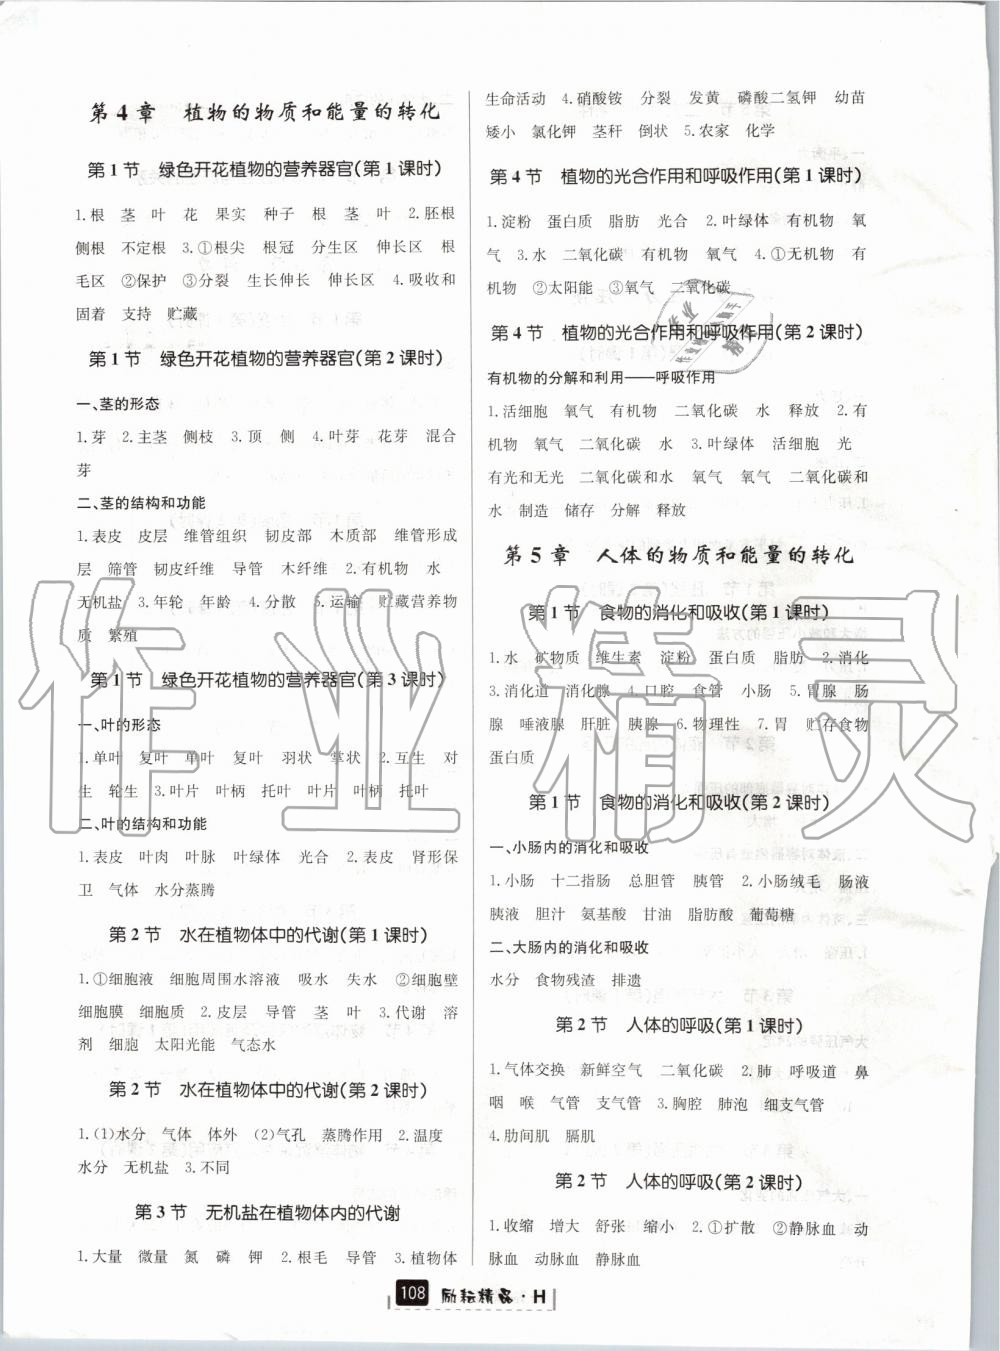 第4章　植物的物质和能量的转化
第1节　绿色开花植物的营养器官(第1课时)
1.根　茎　叶　花　果实　种子　根　茎　叶　2.胚根
侧根　不定根　3.①根尖　根冠　分生区　伸长区　根
毛区　②保护　③分裂　生长伸长　伸长区　4.吸收和
固着　支持　贮藏
第1节　绿色开花植物的营养器官(第2课时)
一、茎的形态
1.芽　2.主茎　侧枝　3.顶　侧　4.叶芽　花芽　混合
芽
二、茎的结构和功能
1.表皮　皮层　维管组织　韧皮部　木质部　维管形成
层　筛管　韧皮纤维　导管　木纤维　2.有机物　水
无机盐　3.年轮　年龄　4.分散　5.运输　贮藏营养物
质　繁殖
第1节　绿色开花植物的营养器官(第3课时)
一、叶的形态
1.单叶　复叶　单叶　复叶　羽状　掌状　2.互生　对
生　轮生　3.叶片　叶柄　托叶　叶片　叶柄　托叶
二、叶的结构和功能
1.表皮　叶肉　叶脉　叶绿体　光合　2.表皮　肾形保
卫　气体　水分蒸腾
第2节　水在植物体中的代谢(第1课时)
1.①细胞液　细胞周围水溶液　吸水　失水　②细胞壁
细胞膜　细胞质　2.皮层　导管　茎　叶　3.代谢　溶
剂　细胞　太阳光能　气态水
第2节　水在植物体中的代谢(第2课时)
1.(1)水分　气体　体外　(2)气孔　蒸腾作用　2.温度
水分　无机盐　3.不同
第3节　无机盐在植物体内的代谢
1.大量　微量　氮　磷　钾　2.根毛　导管　3.植物体
生命活动　4.硝酸铵　分裂　发黄　磷酸二氢钾　幼苗
矮小　氯化钾　茎秆　倒状　5.农家　化学
第4节　植物的光合作用和呼吸作用(第1课时)
1.淀粉　蛋白质　脂肪　光合　2.叶绿体　有机物　氧
气　3.水　二氧化碳　有机物　氧气　4.①无机物　有
机物　②太阳能　③氧气　二氧化碳
第4节　植物的光合作用和呼吸作用(第2课时)
有机物的分解和利用——呼吸作用
1.活细胞　氧气　有机物　二氧化碳　水　释放　2.有
机物　氧气　二氧化碳　水　3.叶绿体　活细胞　光
有光和无光　二氧化碳和水　氧气　氧气　二氧化碳和
水　制造　储存　分解　释放
第5章　人体的物质和能量的转化
第1节　食物的消化和吸收(第1课时)
1.水　矿物质　维生素　淀粉　蛋白质　脂肪　2.消化
3.消化道　消化腺　4.口腔　食管　小肠　5.胃腺　肠
腺　唾液腺　肝脏　胰腺　6.物理性　7.胃　贮存食物
蛋白质
第1节　食物的消化和吸收(第2课时)
一、小肠内的消化和吸收
1.小肠　十二指肠　总胆管　胰管　2.小肠绒毛　肠液
胰液　胆汁　氨基酸　甘油　脂肪酸　葡萄糖
二、大肠内的消化和吸收
水分　食物残渣　排遗
第2节　人体的呼吸(第1课时)
1.气体交换　新鲜空气　二氧化碳　2.肺　呼吸道　鼻
咽　喉　气管　支气管　3.胸腔　肺泡　细支气管
4.肋间肌　膈肌
第2节　人体的呼吸(第2课时)
1.收缩　增大　舒张　缩小　2.①扩散　②静脉血　动
脉血　动脉血　静脉血
108　励耘精品·H
作业精灵